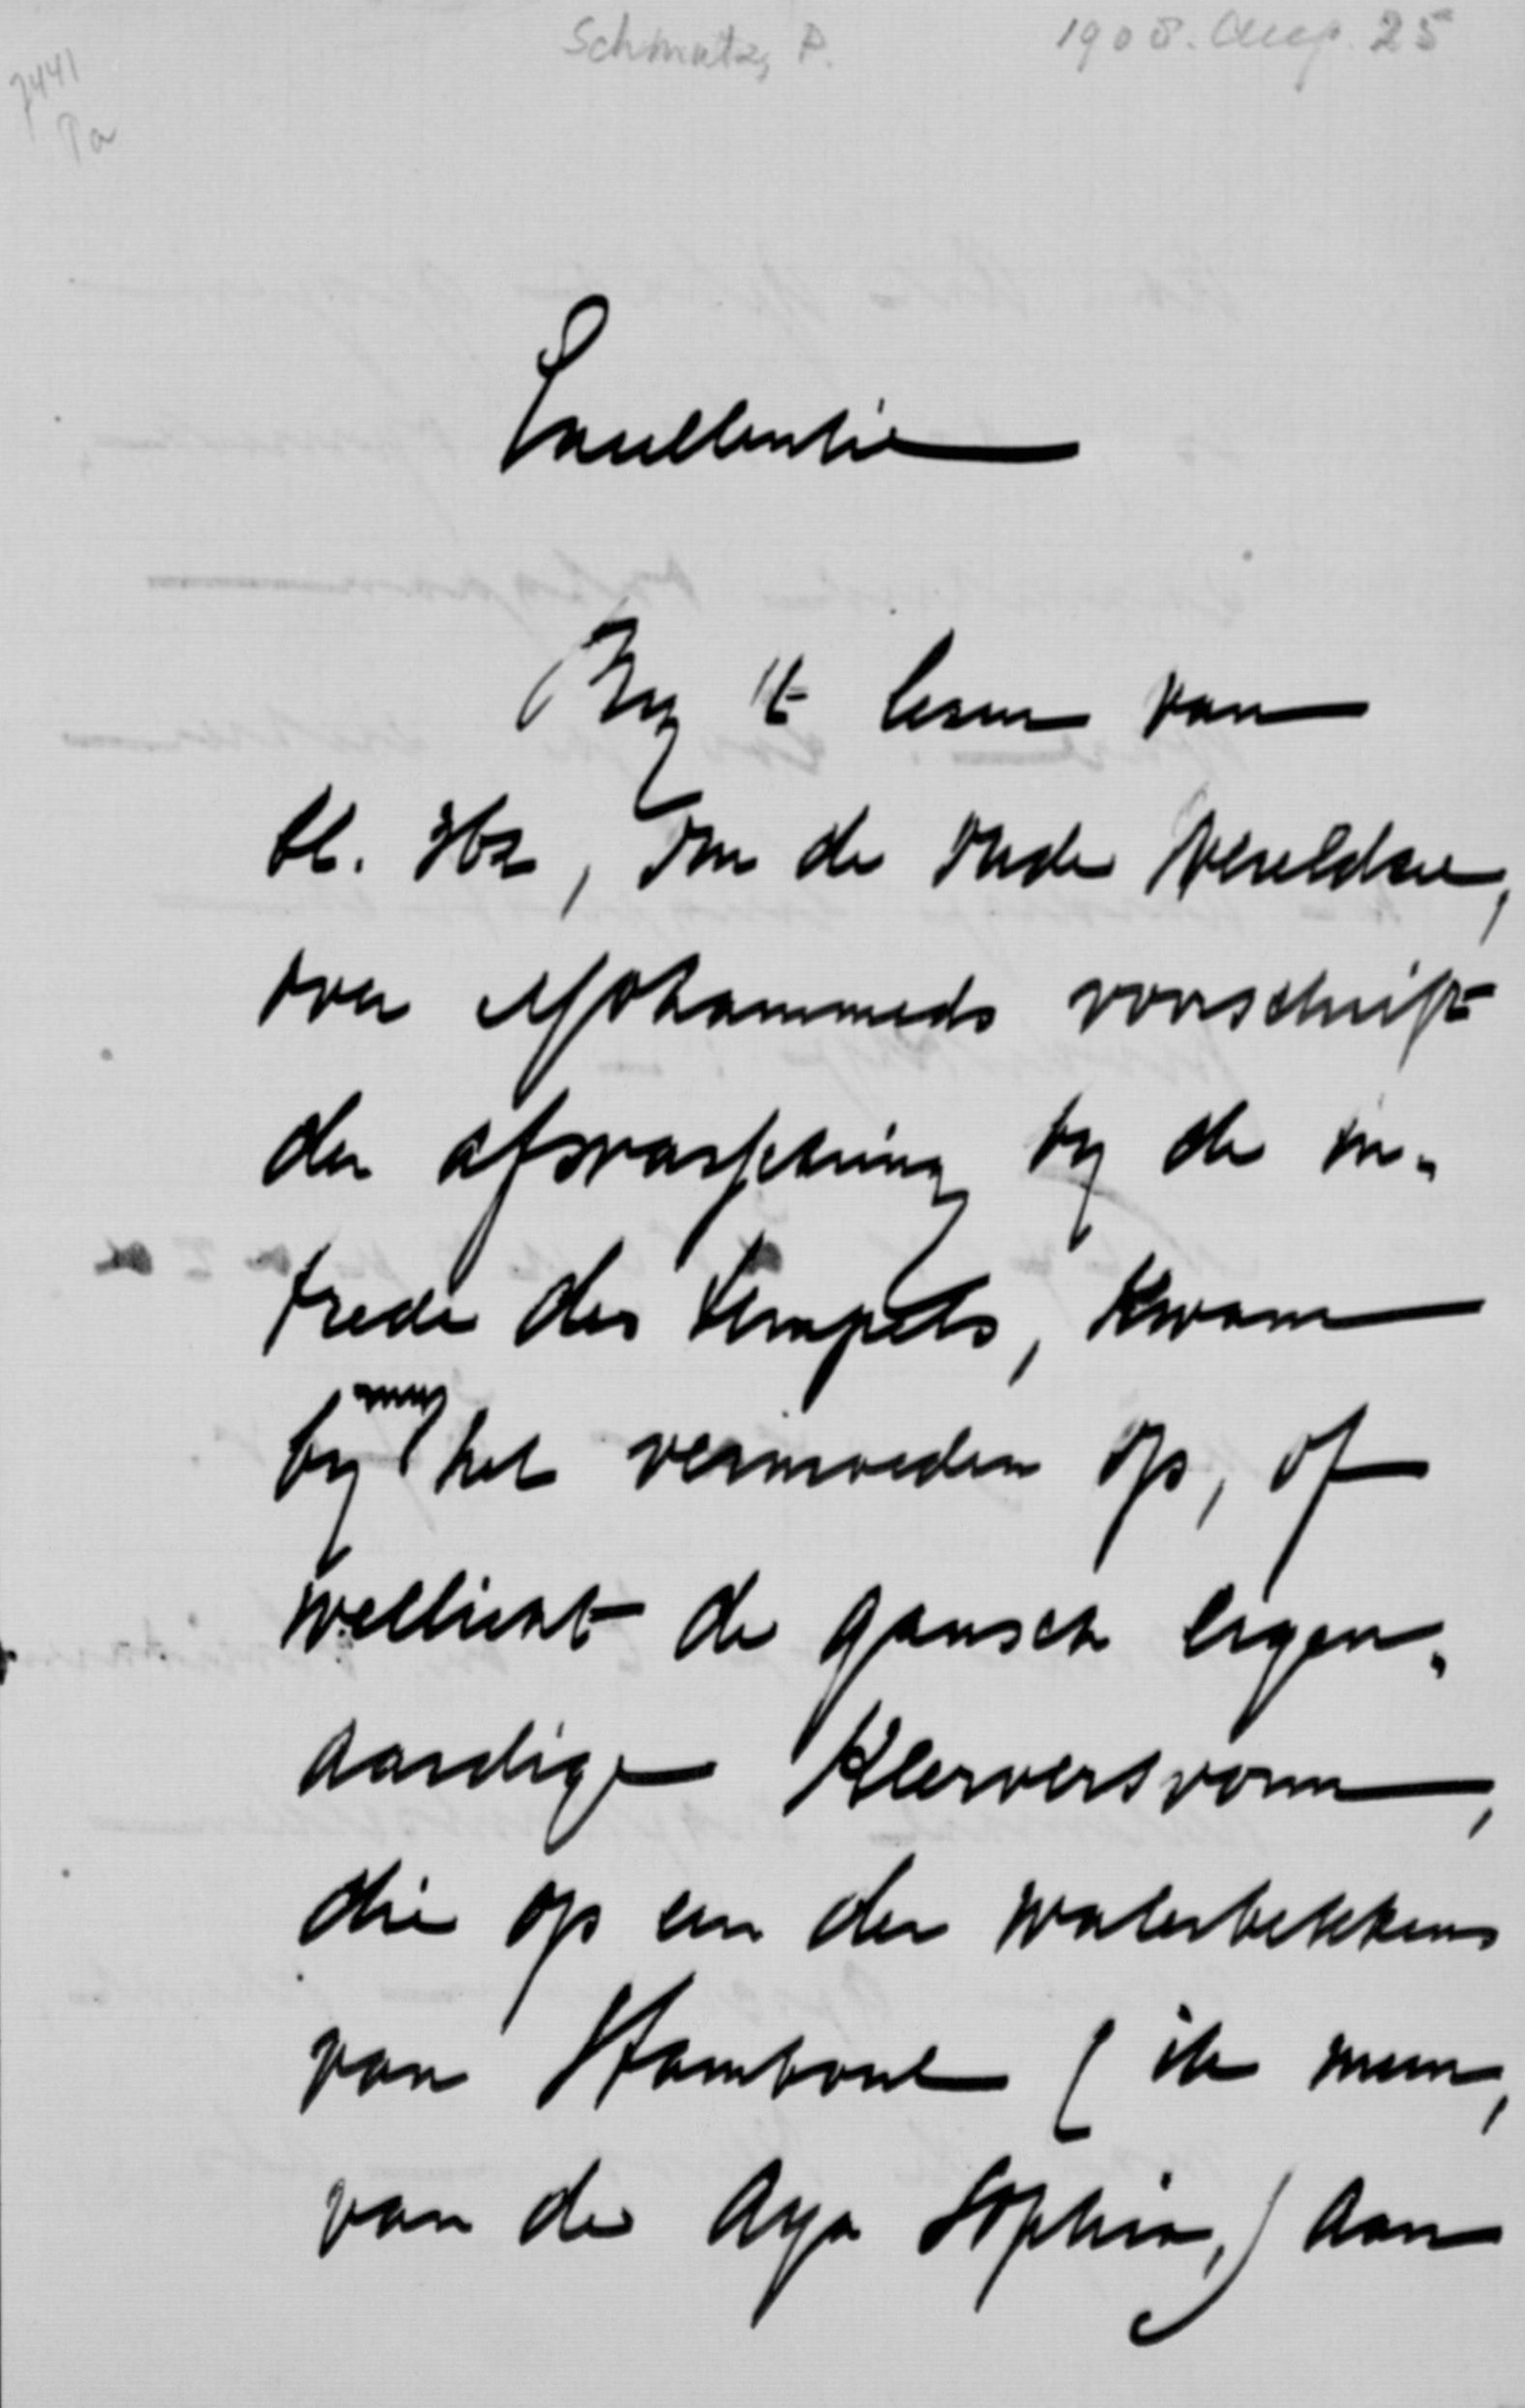 Schmutz, P. 1908. Aug. 25
7441
Pa
Excellentie
By 't lesen van
bl. 362, Om de Oude Wereldzee,
over Mohammeds voorschrift
der afwassching by de in-
trede des tempels, kwam
by my het vermoeden op, of
wellicht de gansch eigen-
aardige Klaverversvorm,
die op een der waterbekkens
van Stamboul (ik meen,
van de Aya Sophia,) aan